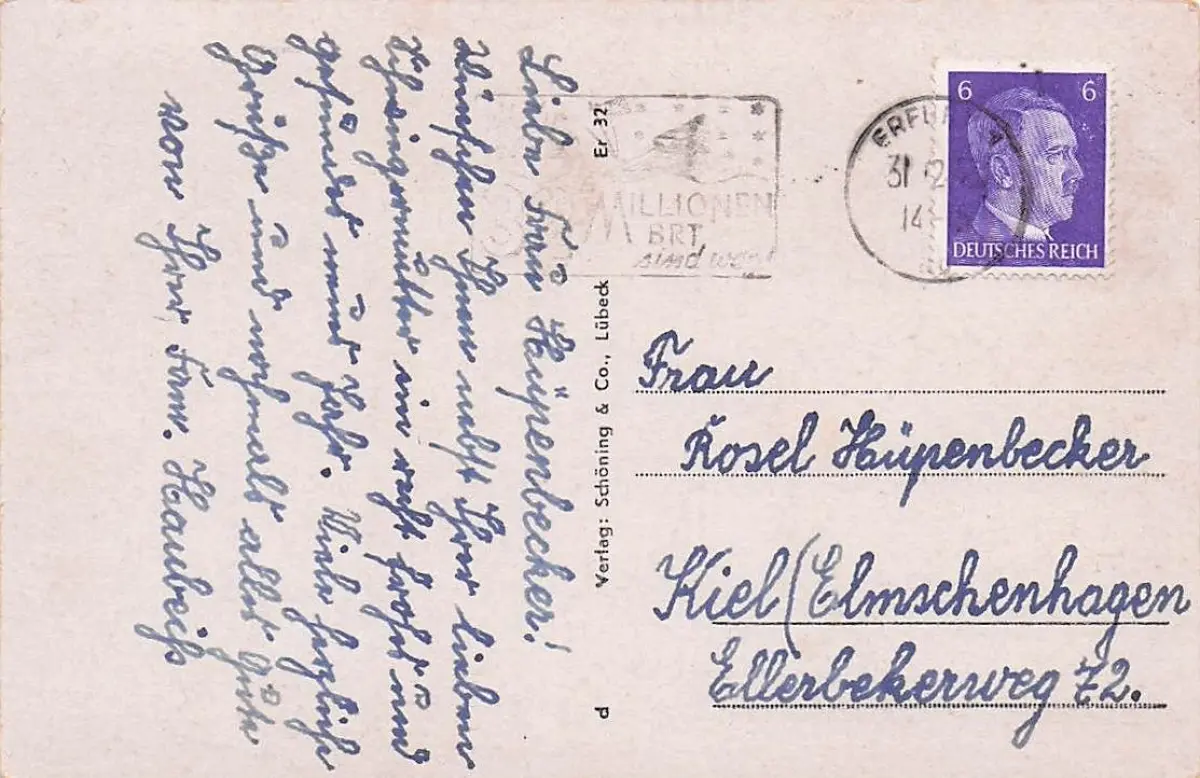 Liebe Frau Hüpenbecker!
Wünschen Ihnen nebst Ihrer lieben
Schwiegermutter ein recht frohes und
gesundes neues Jahr. Viele herzliche
Grüße und nochmals alles Gute
von Ihrer Fam. Haubeiß
Verlag: Schöning & Co., Lübeck
Er 32
d
MILLIONEN
BRT
sind weg!
ERFURT
31 12
14
6 6
DEUTSCHES REICH
Frau
Rosel Hüpenbecker
Kiel (Elmschenhagen
Ellerbekerweg 72.